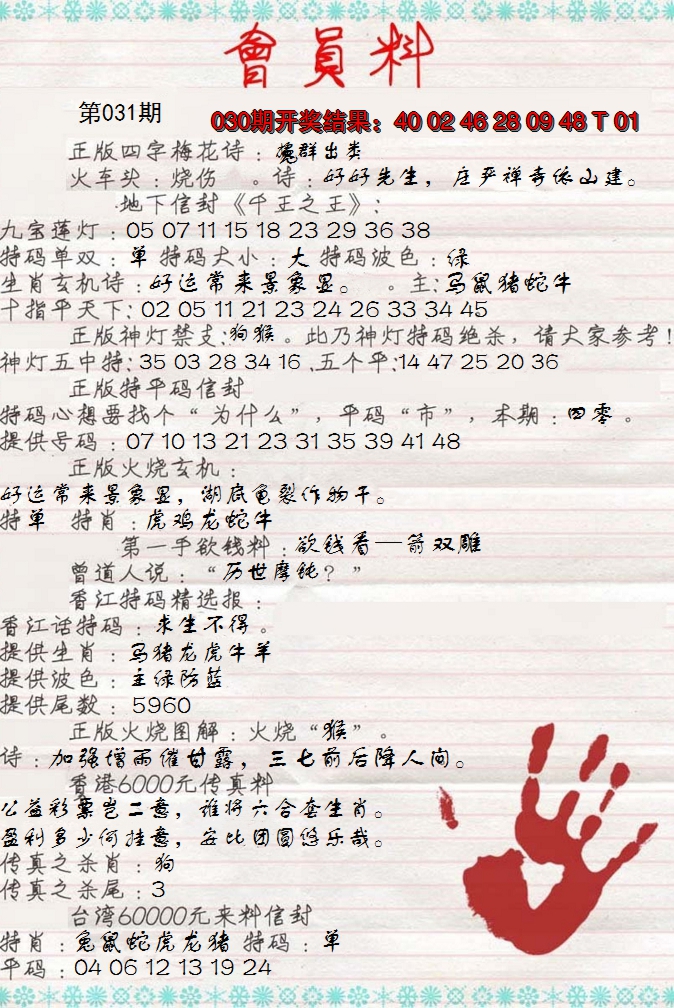 會員料
第031期
030期开奖结果：40 02 46 28 09 48 T 01
正版四字梅花诗：魔群出类
火车头：烧伤　。诗：好好先生，庄严禅寺依山建。
地下信封《千王之王》：
九宝莲灯：05 07 11 15 18 23 29 36 38
特码单双：单 特码大小：大 特码波色：绿
生肖玄机诗：好运常来景象显。　。主：马鼠猪蛇牛
十指平天下：02 05 11 21 23 24 26 33 34 45
正版神灯禁支：狗猴。此乃神灯特码绝杀，请大家参考！
神灯五中特：35 03 28 34 16 .五个平：14 47 25 20 36
正版特平码信封
特码心想要找个“为什么”，平码“市”，本期：四零。
提供号码：07 10 13 21 23 31 35 39 41 48
正版火烧玄机：
好运常来景象显，湖底龟裂作物干。
特单　特肖：虎鸡龙蛇牛
第一手欲钱料：欲钱看一箭双雕
曾道人说：“历世摩钝？”
香江特码精选报：
香江话特码：求生不得。
提供生肖：马猪龙虎牛羊
提供波色：主绿防蓝
提供尾数：5960
正版火烧图解：火烧“猴”。
诗：加强增雨催甘露，三七前后降人间。
香港6000元传真料
公益彩票岂二意，谁将六合套生肖。
盈利多少何挂意，安比团圆悠乐哉。
传真之杀肖：狗
传真之杀尾：3
台湾60000元来料信封
特肖：兔鼠蛇虎龙猪 特码：单
平码：04 06 12 13 19 24